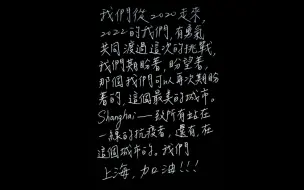 我們從2020走來，
2022的我們，有勇氣
共同渡過這次的挑戰，
我們期盼著，盼望著，
那個我們可以再次期盼
著的，這個最美的城市。
Shanghai——致所有站在
一線的抗疫者，還有，在
這個城市的。我們
上海，加油！！！